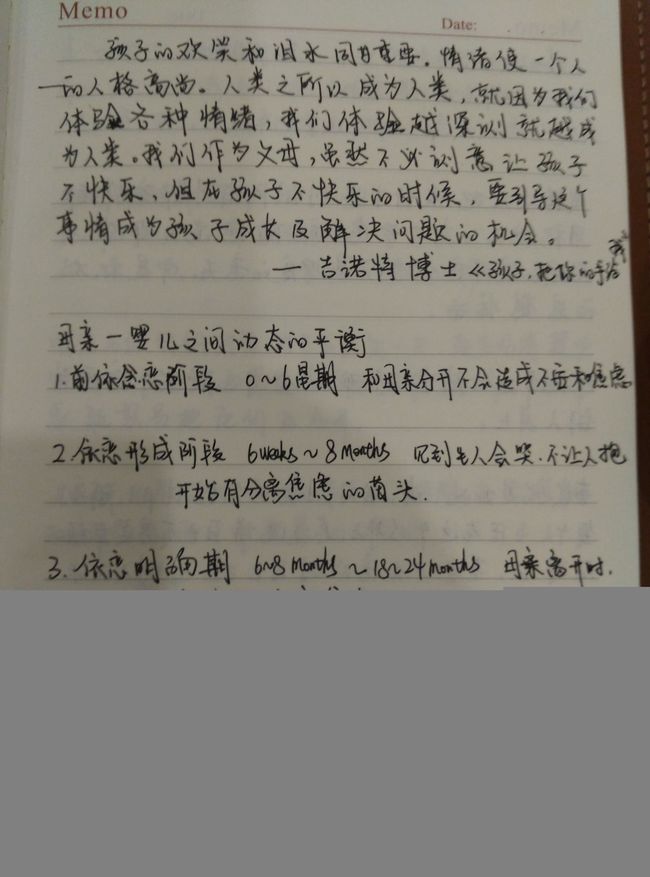 Memo
Date:
孩子的欢笑和泪水同等重要。情绪使一个人
的人格高尚。人类之所以成为人类，就因为我们
体验各种情绪，我们体验越深刻就越成
为人类。我们作为父母，虽然不必刻意让孩子
不快乐，但在孩子不快乐的时候，要引导这个
事情成为孩子成长及解决问题的机会。
— 吉诺特 博士《孩子，把你的手给我》
母亲—婴儿之间动态的平衡
1.前依恋阶段 0~6星期 和母亲分开不会造成不安和焦虑
2.依恋形成阶段 6weeks~8months 见到生人会哭.不让人抱
开始有分离焦虑的苗头.
3.依恋明确期 6~8months~18~24months 母亲离开时.